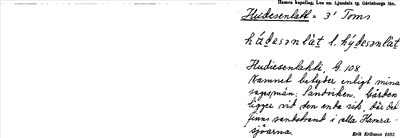 Hamra kapellag, Los sn. Ljusdals tg. Gävleborgs län.
Hudiesenlatt = 3' Toms
hádesənlat l. hýdesənlat
Hudiesenlahti, G. 108
Namnet betyder enligt mina
sagesmän, Sandviken. Gården
ligger vid den enda vik, där det
finns sandstrand i alla Hamra-
sjöarna.
Erik Eriksson 1935